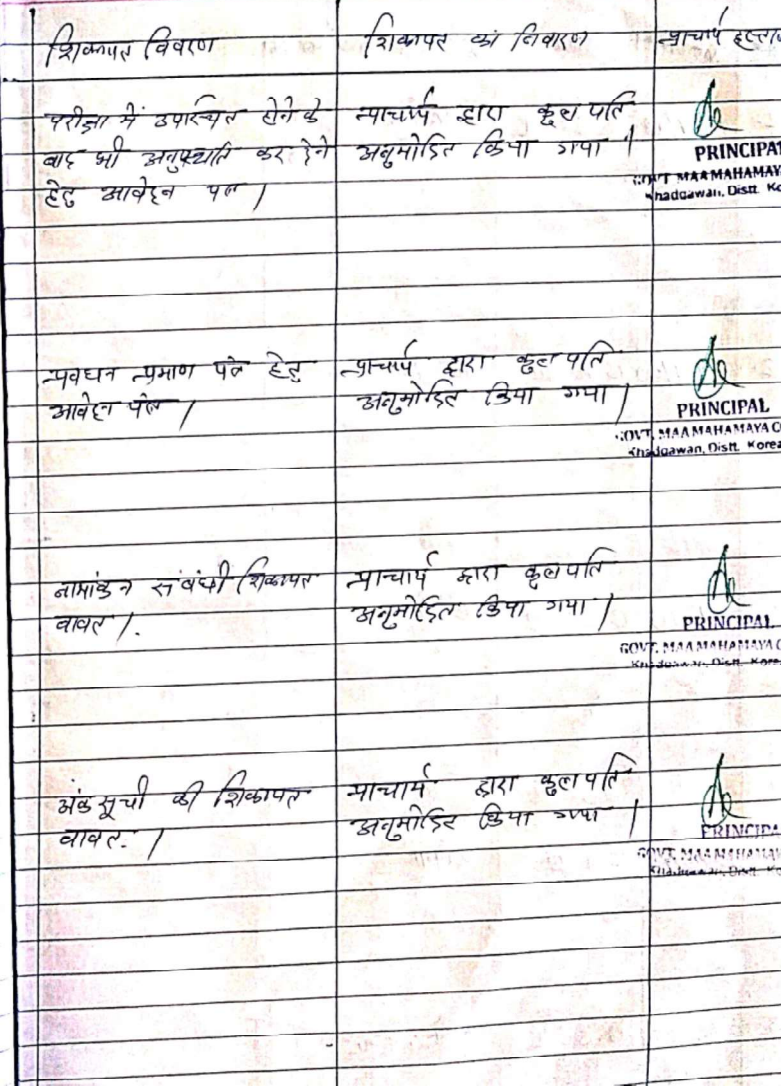 शिकायत विवरण
शिकायत का निवारण
प्राचार्य
परीक्षा में उपस्थित होने के
बाद भी अनुपस्थति कर देने
हेतु आवेदन पत्र |
प्राचार्य द्वारा कुलपति
अनुमोदित किया गया |
PRINCIPA
GOVT MAA MAHAMAY
Khadgawan, Distt. Ko
प्रमाण पत्र हेतु
आवेदन पत्र |
प्राचार्य द्वारा कुलपति
अनुमोदित किया गया |
PRINCIPAL
GOVT. MAA MAHAMAYA CO
Khadgawan, Distt. Korea
नामांकन संबंधी शिकायत
बावत |.
प्राचार्य द्वारा कुलपति
अनुमोदित किया गया |
PRINCIPAL
GOVT. MAA MAHAMAYA C
Khadgawan, Distt. Kore
अंकसूची की शिकायत
बावत. |
प्राचार्य द्वारा कुलपति
अनुमोदित किया गया |
PRINCIPA
GOVT. MAA MAHAMAY
Khadgawan, Distt. Ko